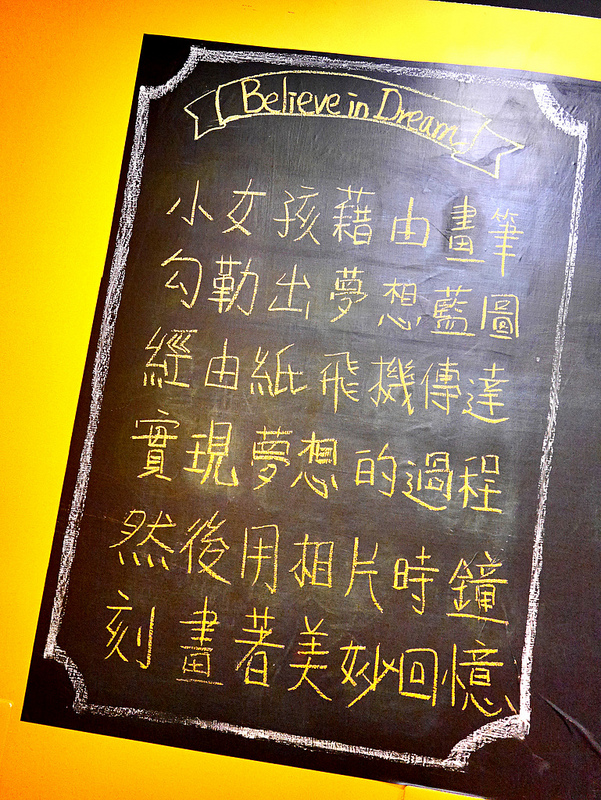 Believe in Dream
小女孩藉由畫筆
勾勒出夢想藍圖
經由紙飛機傳達
實現夢想的過程
然後用相片時鐘
刻畫著美妙回憶